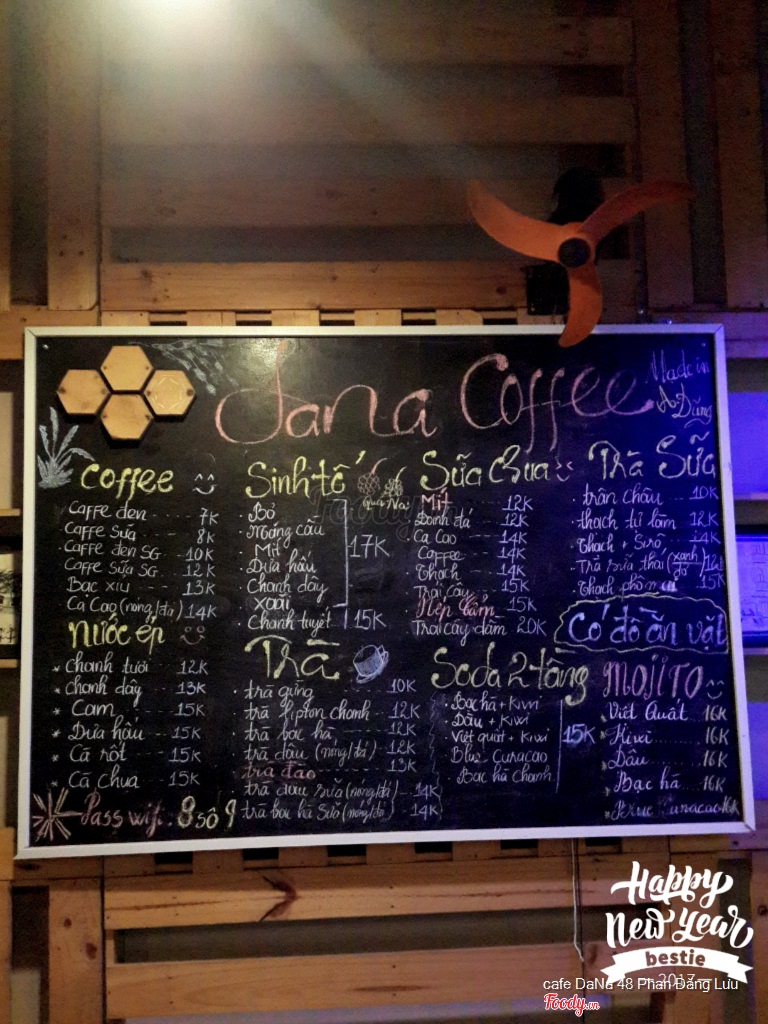 Dana Coffee
Made in
A Dũng
Coffee
Caffe đen 7K
Caffe sữa 8K
Caffe đen SG 10K
Caffe sữa SG 12K
Bạc xỉu 13K
Ca Cao (nóng/đá) 14K
Nước ép
Chanh tươi 12K
Chanh dây 13K
Cam 15K
Dưa hấu 15K
Cà rốt 15K
Cà chua 15K
Pass wifi: 8 số 9
Sinh tố
Quả Na
Bơ
Mãng cầu
Mít
Dưa hấu
Chanh dây
Xoài
17K
Chanh tuyết 15K
Trà
trà gừng 10K
trà lipton chanh 12K
trà bạc hà 12K
trà dâu (nóng/đá) 12K
trà đào 13K
trà dâu sữa (nóng/đá) 14K
trà bạc hà sữa (nóng/đá) 14K
Sữa Chua
Mít 12K
Đánh đá 12K
Ca Cao 14K
Caffee 14K
Thạch 14K
Trái Cây 15K
Nếp Cẩm 15K
Trái cây dầm 20K
Soda 2 tầng
Bạc hà + Kiwi
Dâu + Kiwi
Việt quất + Kiwi
Blue Curacao
Bạc hà chanh
15K
Trà Sữa
trân châu 10K
thạch tứ lầm 12K
Thạch + Sirô 14K
Trà sữa thái (xanh/đỏ)
Thạch phô mai 15K
Có đồ ăn vặt
MOJITO
Việt Quất 16K
Kiwi 16K
Dâu 16K
Bạc hà 16K
Blue Curacao 16K
Happy
New Year
bestie
2017
cafe DaNa 48 Phan Đăng Lưu
Foody.vn